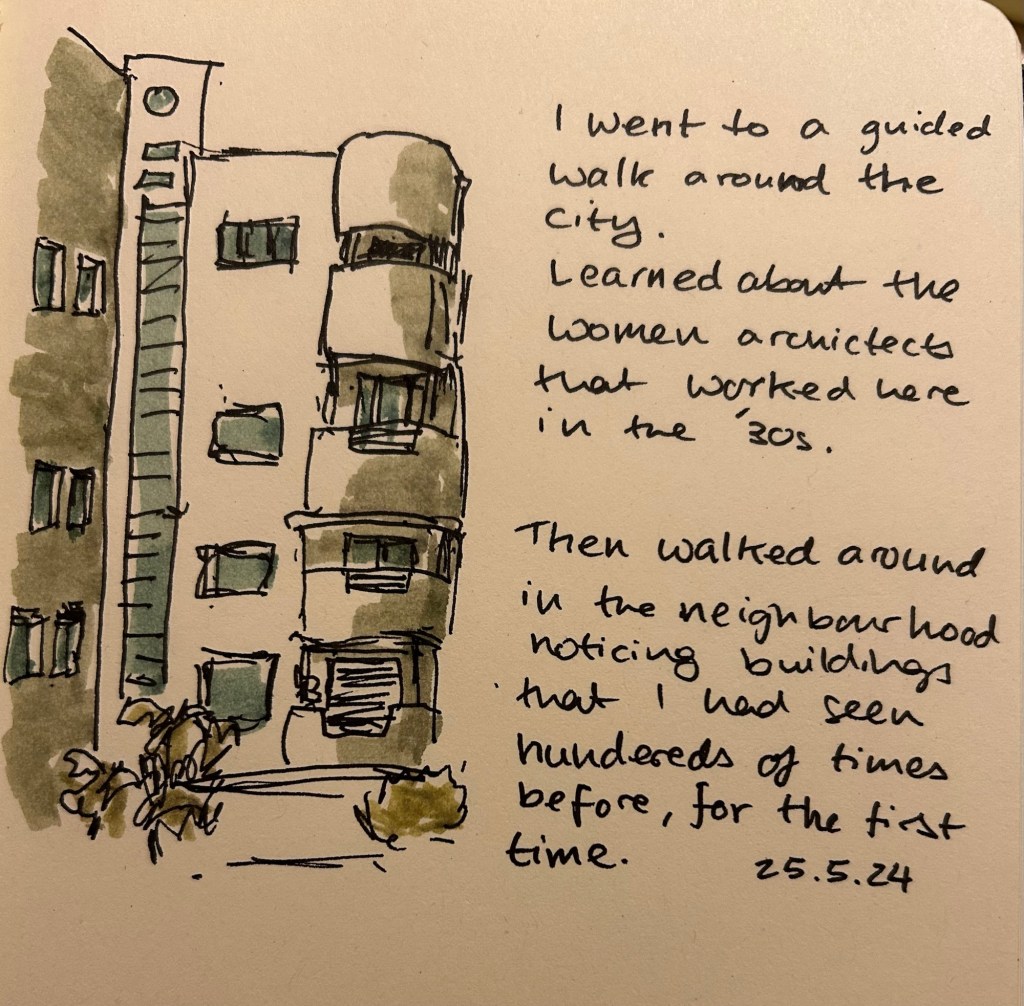 I went to a guided
walk around the
city.
Learned about the
women archictects
that worked here
in the '30s.
Then walked around
in the neighbourhood
noticing buildings
that I had seen
hundereds of times
before, for the first
time.
25.5.24